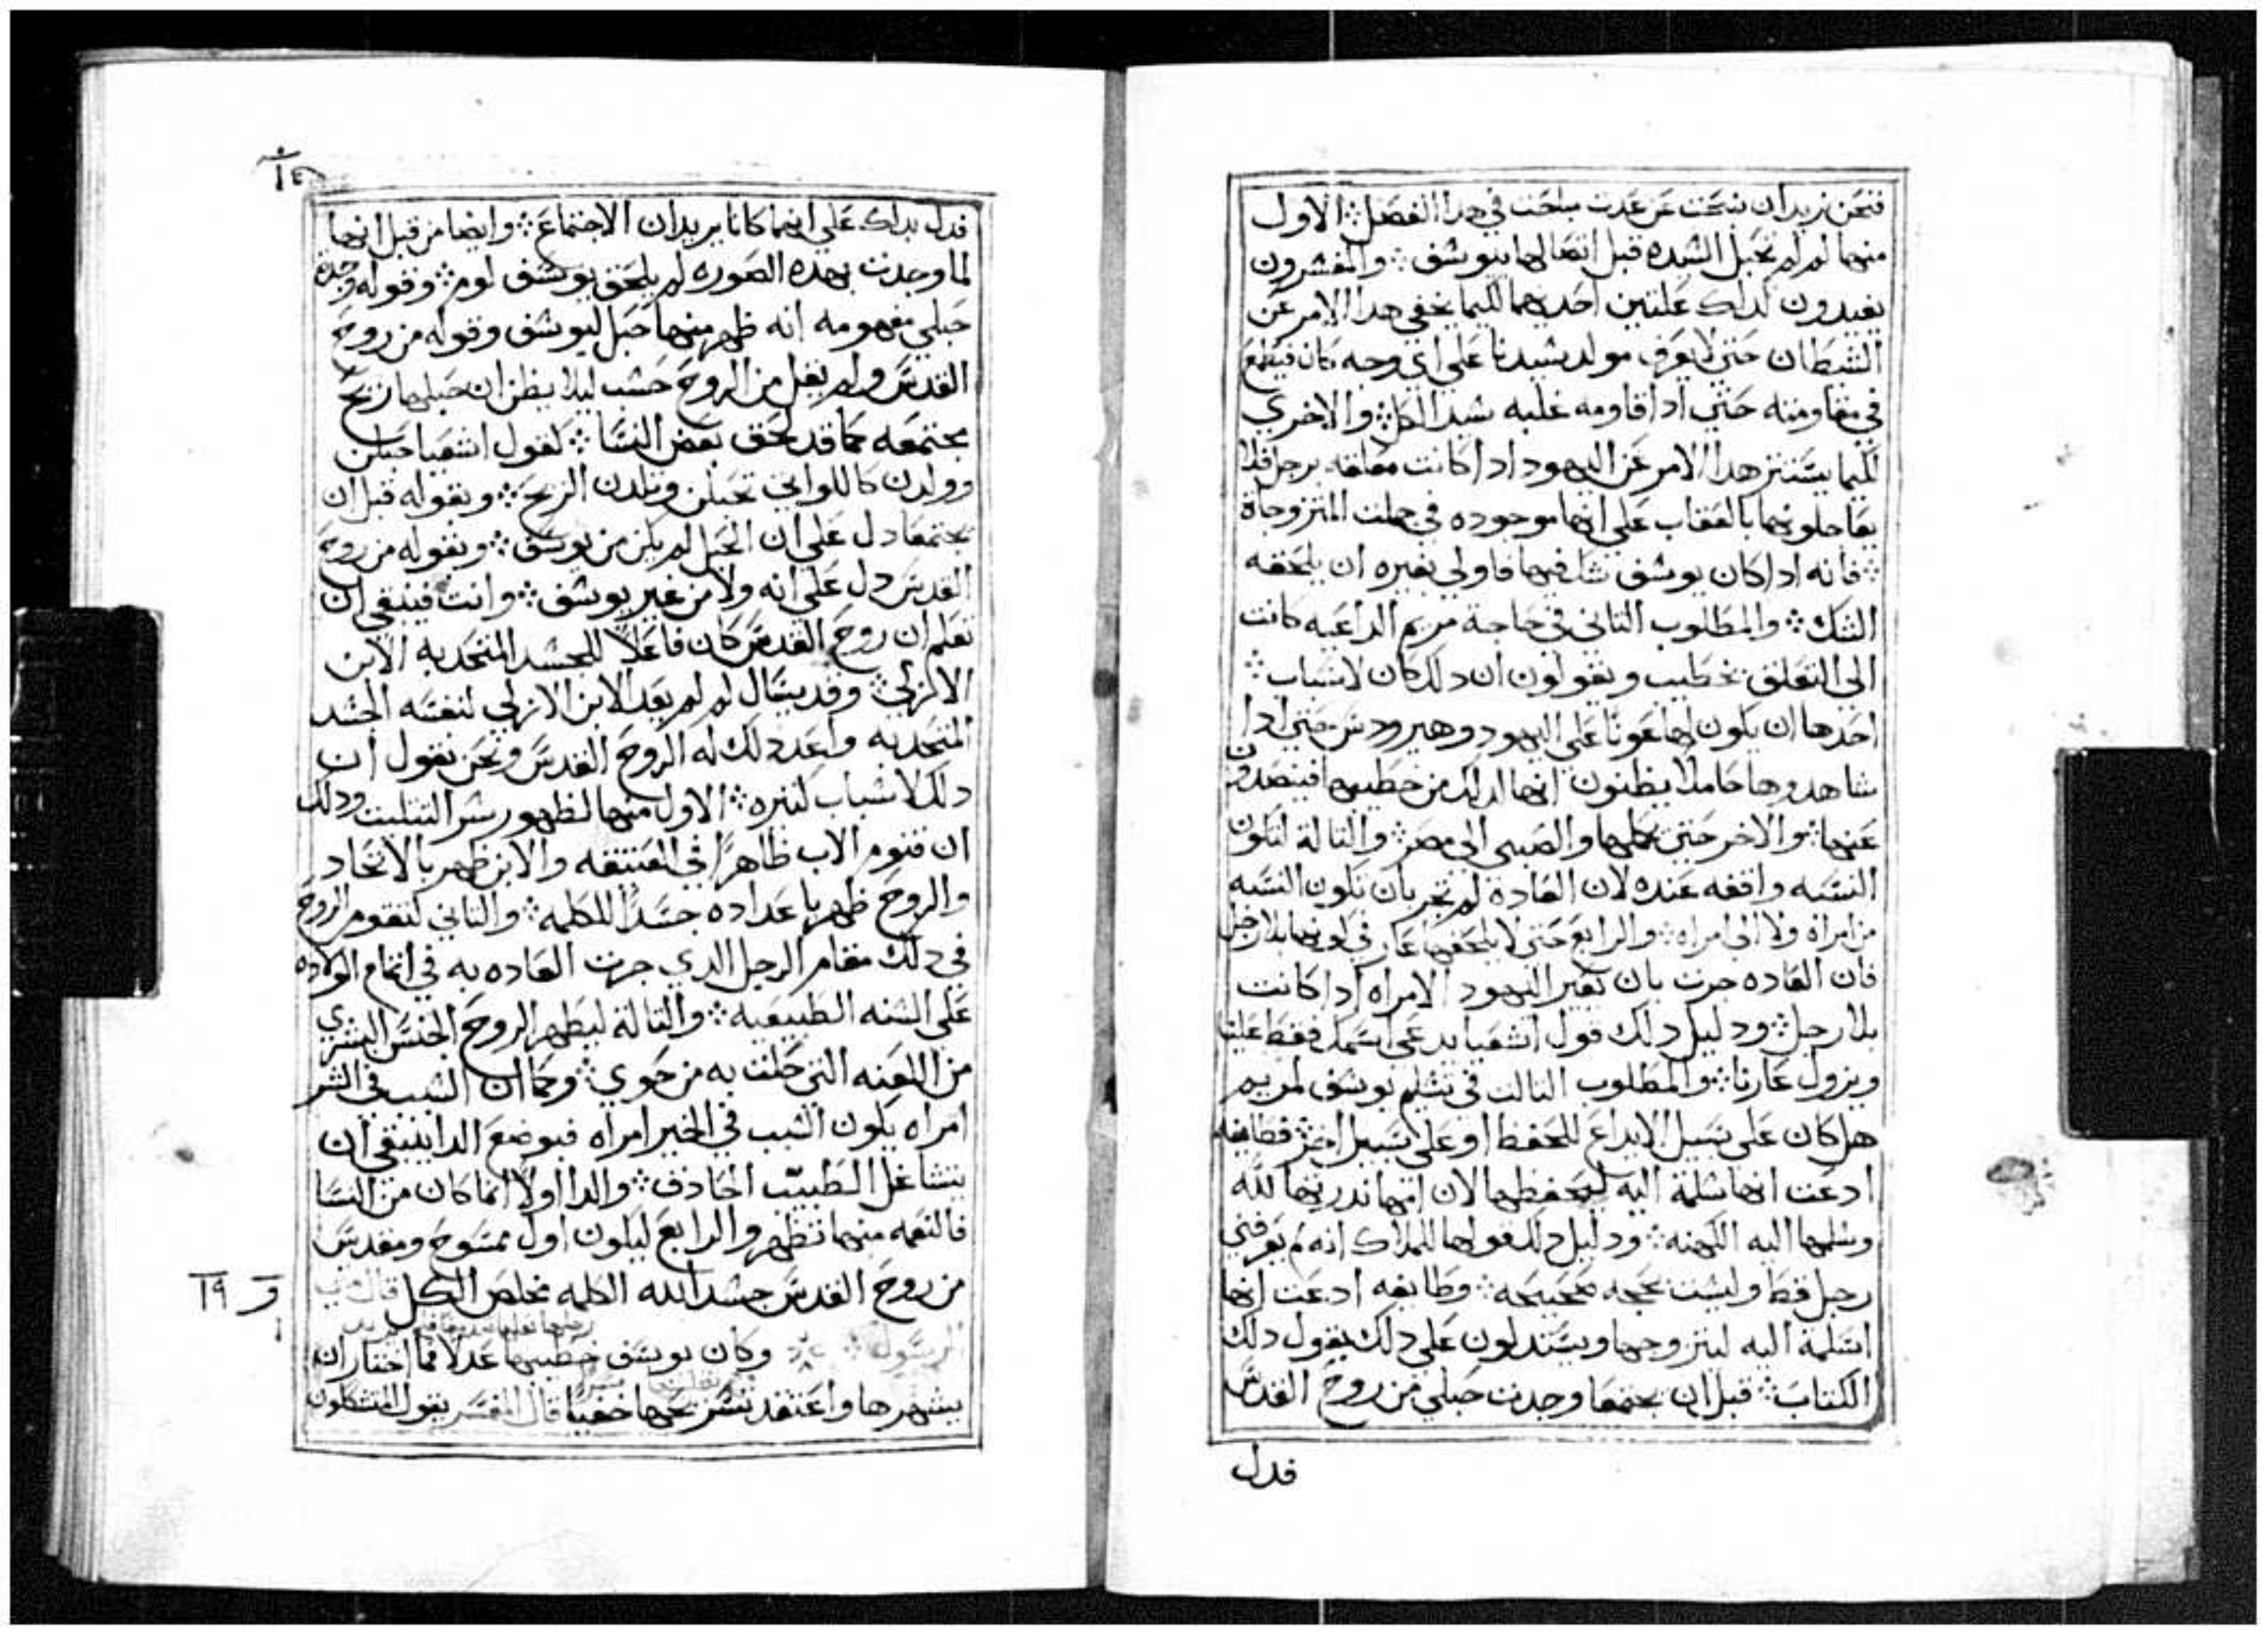 فنحن نريد ان نبحث عن عدت مباحث في هدا الفصل ܀ الاول
منهما لم لم تحبل السيده قبل اتصالها بيوسف ܀ والمفسرون
يفيدون لدلك علتين احديهما لكيما يخفي هدا الامر عن
الشيطان حتى لا يعرف مولد سيدنا على اي وجه كان فيطمع
في مقاومته حتي ادا قاومه غلبه سيد الكل ܀ والاخري
لكيما يستتر هدا الامر عن اليهود ادا كانت معلقه برجل فلا
يعاجلونها بالعقاب على انها موجوده في جملت المتزوجاة
܀ فانه ادا كان يوسف شك فيها فاولي بغيره ان يلحقه
الشك ܀ والمطلوب التاني في حاجة مريم الداعيه كانت
الي التعلق بخطيب ويقولون ان دلك كان لاسباب ܀
احدها ان يكون لها عونا على اليهود وهيرودس حتي ادا
شاهدوها حاملا يظنون انها الدلك من خطيبها فينصدون
عنها ܀ والاخر حتي يحملها والصبي الى مصر ܀ والتالة لتكون
النسبه واقفه عنده لان العادة لم تجر بان تكون النسبه
من امراة ولا الى امراه ܀ والرابع حتى لا يلحقها عار في كونها بلا رجل
فان العاده جرت بان تعير اليهود الامراه ادا كانت
بلا رجل ܀ ودليل دلك قول اشعيا يدعى اسمك فقط علينا
ويزول عارنا ܀ والمطلوب التالت في تسلم يوسف لمريم
هل كان على سبيل الايداع للحفظ او على سبيل اخر ܀ فطايفه
ادعت انها سلمة اليه ليحفظها لان امها ندرتها لله
وسلمها اليه الكهنه ܀ ودليل دلك قولها للملاك انه لم يعرفني
رجل قط وليست بحجه صحيحه ܀ وطايفه ادعت انها
اسلمة اليه ليتزوجها ويستدلون على دلك بقول دلك
الكتاب ܀ قبل ان يجتمعا وجدت حبلي من روح القدس
فدل
فدل بدلك على انهما كانا يريدان الاجتماع ܀ وايضا من قبل انها
لما وجدت بهده الصوره لم يلحق يوسف لوم ܀ وقوله وجدة
حبلي مفهومه انه ظهر منها حبل ليوسف وقوله من روح
القدس ولم يقل من الروح حسب ليلا يظن ان حبلها ريح
مجتمعه كما قد يلحق بعض النسا ܀ كقول اشعيا حبلن
وولدن كاللواتي تحبلن وتلدن الريح ܀ وبقوله قبل ان
يجتمعا دل على ان الحبل لم يكن من يوسف ܀ وبقوله من روح
القدس دل على انه ولا من غير يوسف ܀ وانت فينبغي ان
تعلم ان روح القدس كان فاعلا للجسد المتحد به الابن
الازلي ܀ وقد يسال لم لم يعد الابن الازلي لنفسه الجسد
المتحد به واعد دلك له الروح القدس ونحن نقول ان
دلك لاسباب كتيره ܀ الاول منها لظهور سر التتليت ودلك
ان قنوم الاب ظاهرا في العتيقه والابن ظهر بالاتحاد
والروح ظهر باعداده جسدا للكلمه ܀ والتاني لتقوم الروح
في دلك مقام الرجل الدي جرت العاده به في اتمام الولاده
على السنه الطبيعيه ܀ والتالة ليطهر الروح الجنس البشري
من اللعنه التي حلت به من حوي ܀ وكما ان السبب في الشر
امراه يكون السبب في الخير امراه فبوضع الدا ينبغي ان
يتشاغل الطبيب الحادق ܀ والدا اولا انما كان من النسا
فالنعمه منهما تظهر والرابع ليكون اول ممسوح ومقدس
من روح القدس جسد الله الكلمه مخلص الكل قال
الرسول ܀ وكان يوسف خطيبها عدلا فما اختار ان
يشهرها واعتقد تسريحها خفيا قال المفسر يقول المتشككون